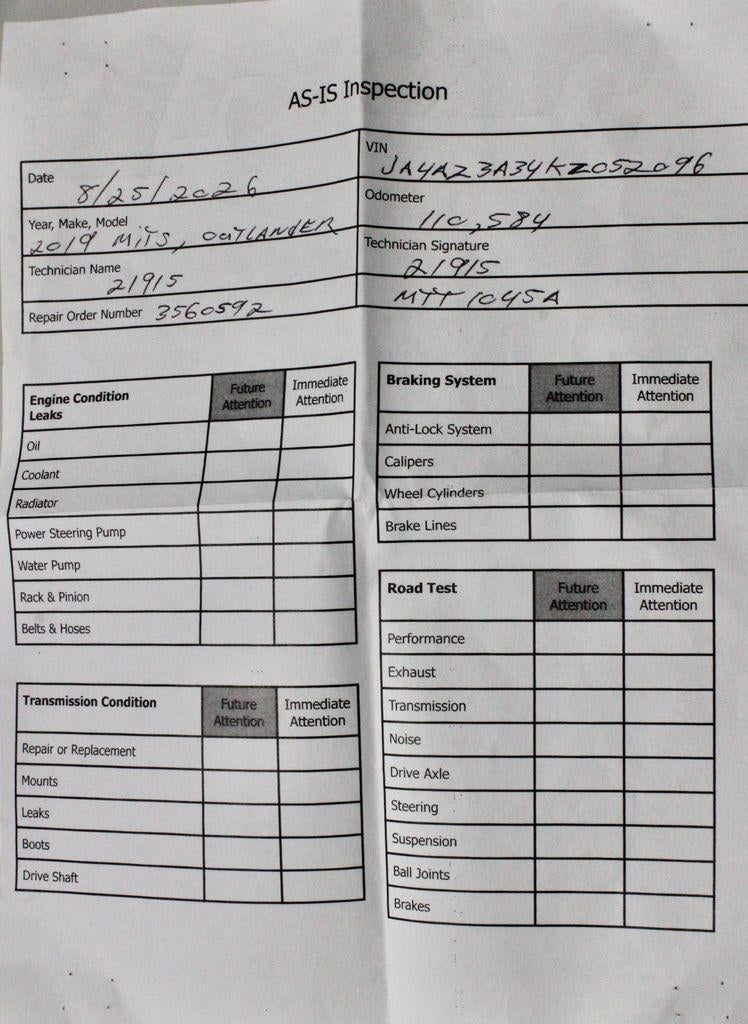 AS-IS Inspection
Date 8/25/2026
VIN JA4AZ3A34KZ052096
Year, Make, Model 2019 MITS, OUTLANDER
Odometer 110,584
Technician Name 21915
Technician Signature 21915
Repair Order Number 3560592
MTT 1045A
Engine Condition Leaks Future Attention Immediate Attention
Oil
Coolant
Radiator
Power Steering Pump
Water Pump
Rack & Pinion
Belts & Hoses
Transmission Condition Future Attention Immediate Attention
Repair or Replacement
Mounts
Leaks
Boots
Drive Shaft
Braking System Future Attention Immediate Attention
Anti-Lock System
Calipers
Wheel Cylinders
Brake Lines
Road Test Future Attention Immediate Attention
Performance
Exhaust
Transmission
Noise
Drive Axle
Steering
Suspension
Ball Joints
Brakes